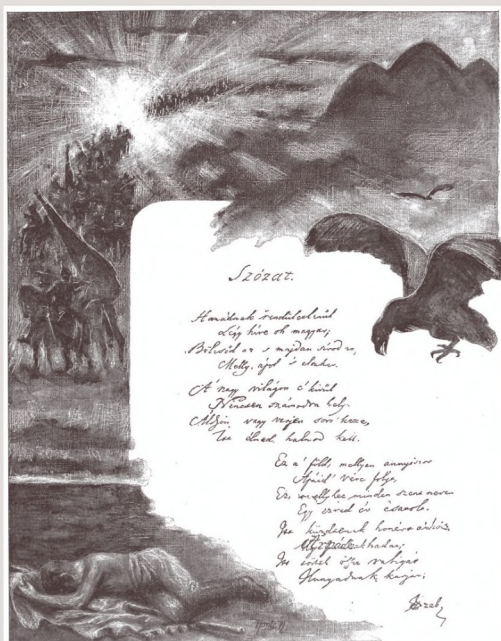 Szózat.
Hazádnak rendületlenűl
Légy híve oh magyar;
Bölcsőd az s majdan sírod is,
Melly ápol s eltakar.
A' nagy világon e' kívűl
Nincsen számodra hely;
Áldjon, vagy verjen sors keze,
Itt élned, halnod kell.
Ez a' föld, mellyen annyiszor
Apáid' vére folyt;
Ez, mellyhez minden szent nevet
Egy ezred év csatolt.
Itt küzdtenek honért a' hős
Árpádnak hadai;
Itt törtek össze rabigát
Hunyadnak karjai;